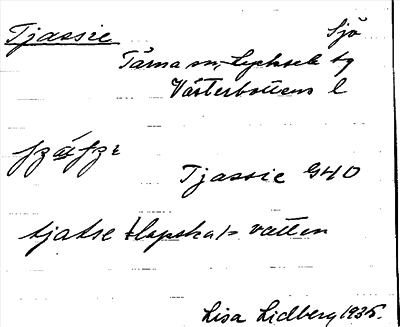 Tjassie Sjö
Tärna sn, Lycksele tg
Västerbottens l
Tjassie G40
tjatse (lapska) = vatten
Lisa Lidberg 1935.